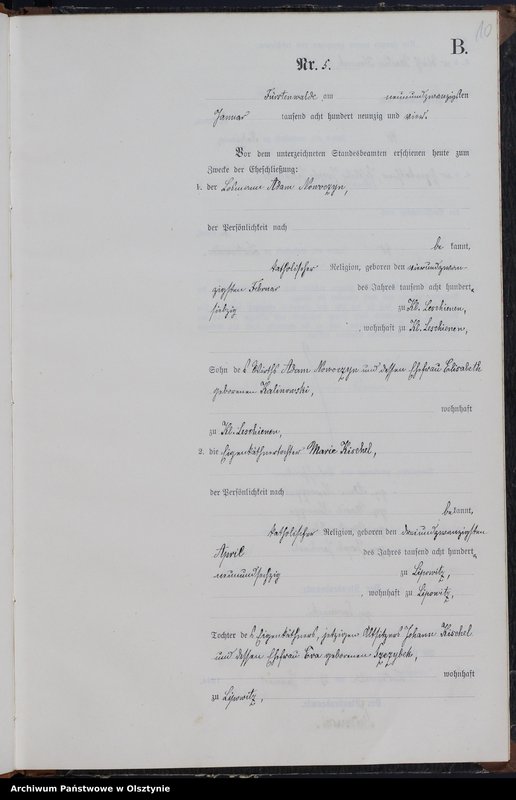 10
B.
Nr. 5.
Fürstenwalde am neunundzwanzigsten
Januar tausend acht hundert neunzig und vier.
Vor dem unterzeichneten Standesbeamten erschienen heute zum
Zwecke der Eheschließung:
1. der Losmann Adam Nowoczyn,
der Persönlichkeit nach
be kannt,
katholischer Religion, geboren den vierundzwan-
zigsten Februar des Jahres tausend acht hundert
siebzig zu Kl. Leschienen,
, wohnhaft zu Kl. Leschienen,
Sohn des Wirths Adam Nowoczyn und dessen Ehefrau Elisabeth
geborenen Kalinowski,
wohnhaft
zu Kl. Leschienen,
2. die Eigenkäthnertochter Marie Kischel,
der Persönlichkeit nach
bekannt,
katholischer Religion, geboren den dreiundzwanzigsten
April des Jahres tausend acht hundert
neunundsechzig zu Lipowitz,
, wohnhaft zu Lipowitz,
Tochter des Eigenkäthners, jetzigen Altsitzers Johann Kischel
und dessen Ehefrau Eva geborenen
wohnhaft
zu Lipowitz,
Archiwum Państwowe w Olsztynie